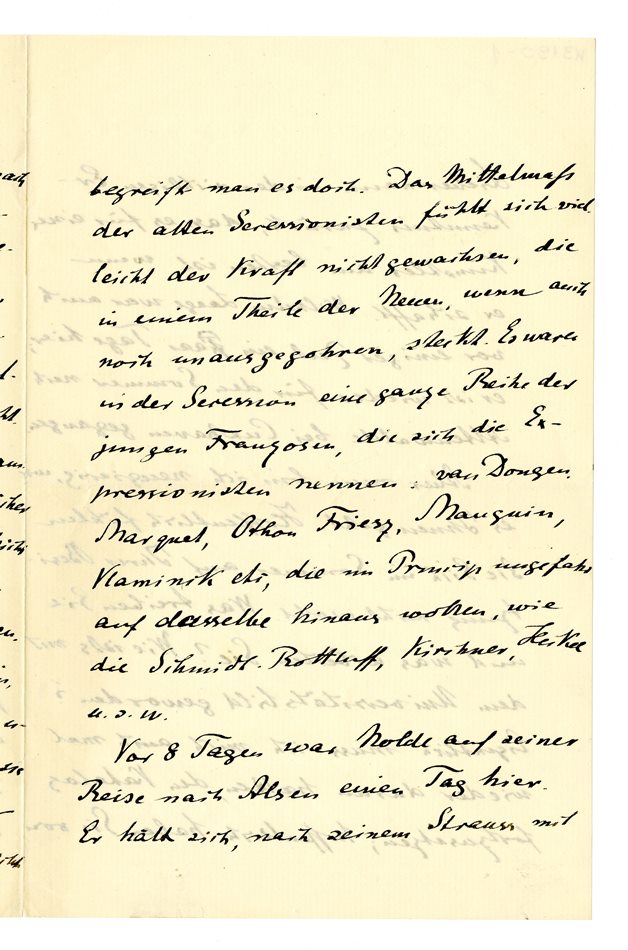 begreift man es doch. Das Mittelmaß
der alten Secessionisten fühlt sich viel
leicht der Kraft nicht gewachsen, die
in einem Theile der Neuen, wenn auch
noch unausgegohren, steckt. Es waren
in der Secession eine ganze Reihe der
jungen Franzosen, die sich die Ex-
pressionisten nennen: van Dongen,
Marquet, Othon Friesz, Manguin,
Vlaminik etc, die im Princip ungefähr
auf dasselbe hinaus wollen, wie
die Schmidt-Rottluff, Kirchner, Heckel
u.s.w.
Vor 8 Tagen war Nolde auf seiner
Reise nach Alsen einen Tag hier.
Er hält sich, nach seinem Strauss mit